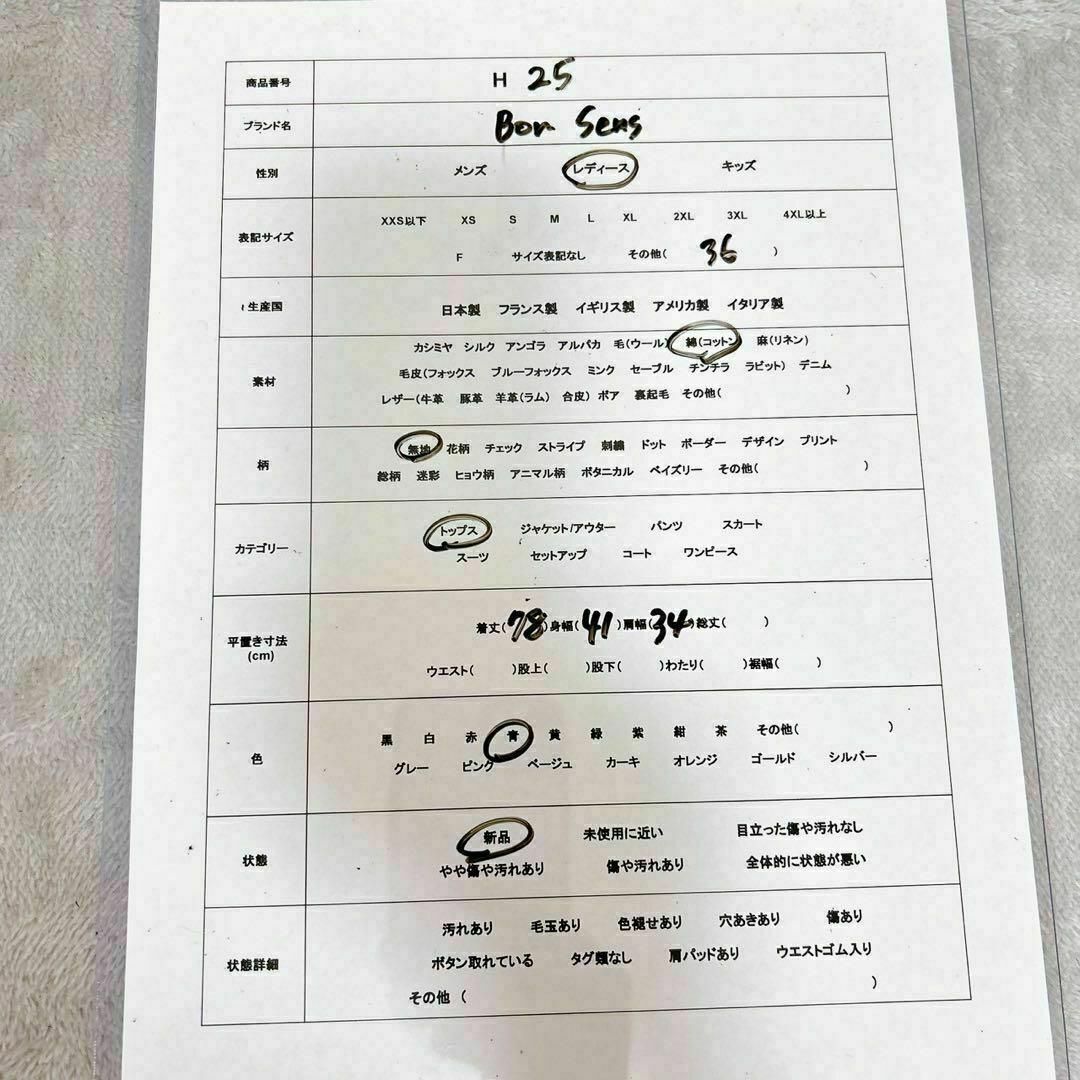 商品番号 H 25
ブランド名 Bon Sens
性別 メンズ レディース キッズ
表記サイズ XXS以下 XS S M L XL 2XL 3XL 4XL以上
F サイズ表記なし その他( 36 )
生産国 日本製 フランス製 イギリス製 アメリカ製 イタリア製
素材 カシミヤ シルク アンゴラ アルパカ 毛(ウール) 綿(コットン 麻(リネン)
毛皮(フォックス ブルーフォックス ミンク セーブル チンチラ ラビット) デニム
レザー(牛革 豚革 羊革(ラム) 合皮) ボア 裏起毛 その他( )
柄 無地 花柄 チェック ストライプ 刺繍 ドット ボーダー デザイン プリント
総柄 迷彩 ヒョウ柄 アニマル柄 ボタニカル ペイズリー その他( )
カテゴリー トップス ジャケット/アウター パンツ スカート
スーツ セットアップ コート ワンピース
平置き寸法 (cm) 着丈( 78 )身幅( 41 )肩幅( 34 )総丈( )
ウエスト( )股上( )股下( )わたり( )裾幅( )
色 黒 白 赤 青 黄 緑 紫 紺 茶 その他( )
グレー ピンク ベージュ カーキ オレンジ ゴールド シルバー
状態 新品 未使用に近い 目立った傷や汚れなし
やや傷や汚れあり 傷や汚れあり 全体的に状態が悪い
状態詳細 汚れあり 毛玉あり 色褪せあり 穴あきあり 傷あり
ボタン取れている タグ類なし 肩パッドあり ウエストゴム入り
その他 ( )